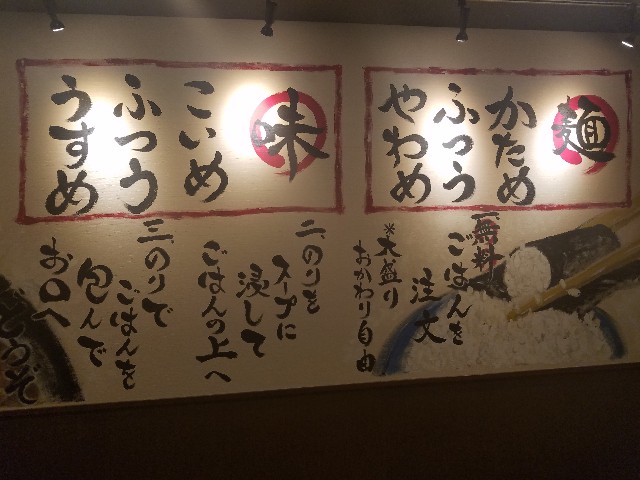 麺
かため
ふつう
やわめ
味
こいめ
ふつう
うすめ
一、無料
ごはんを
注文
※大盛り
おかわり自由
二、のりを
スープに
浸して
ごはんの上へ
三、のりで
ごはんを
包んで
お口へ
どうぞ